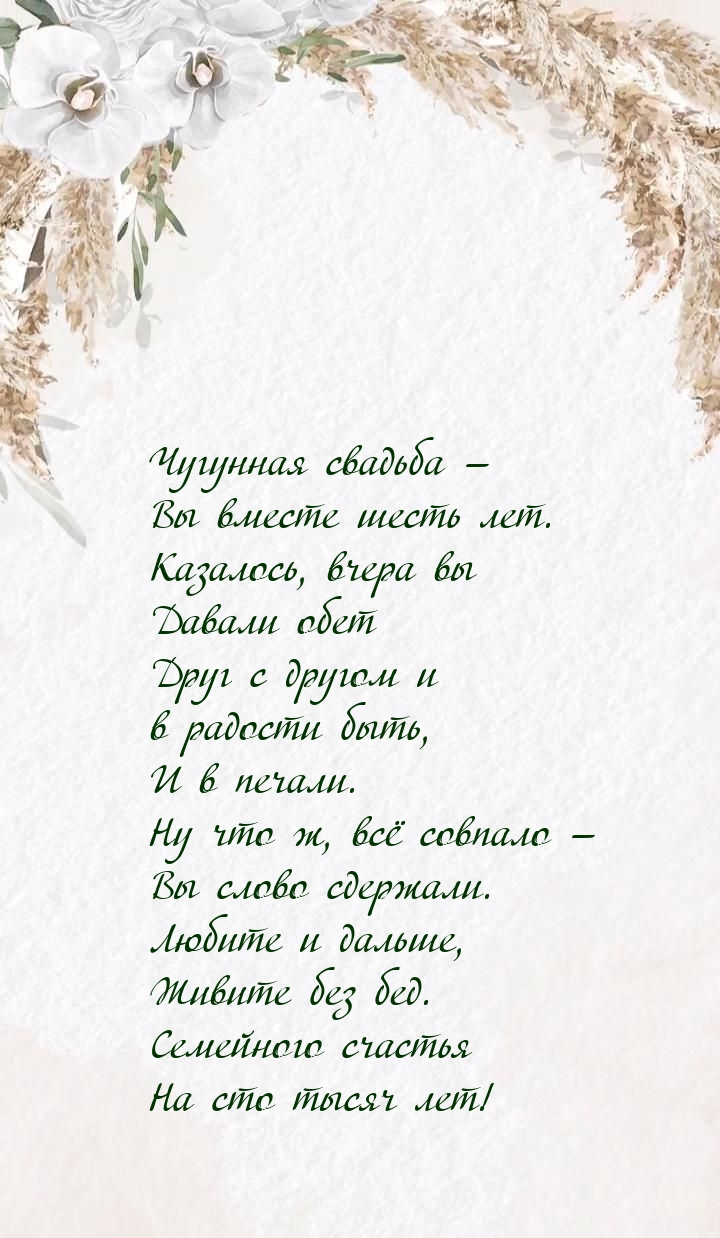 Чугунная свадьба –
Вы вместе шесть лет.
Казалось, вчера вы
Давали обет
Друг с другом и
в радости быть,
И в печали.
Ну что ж, всё совпало –
Вы слово сдержали.
Любите и дальше,
Живите без бед.
Семейного счастья
На сто тысяч лет!